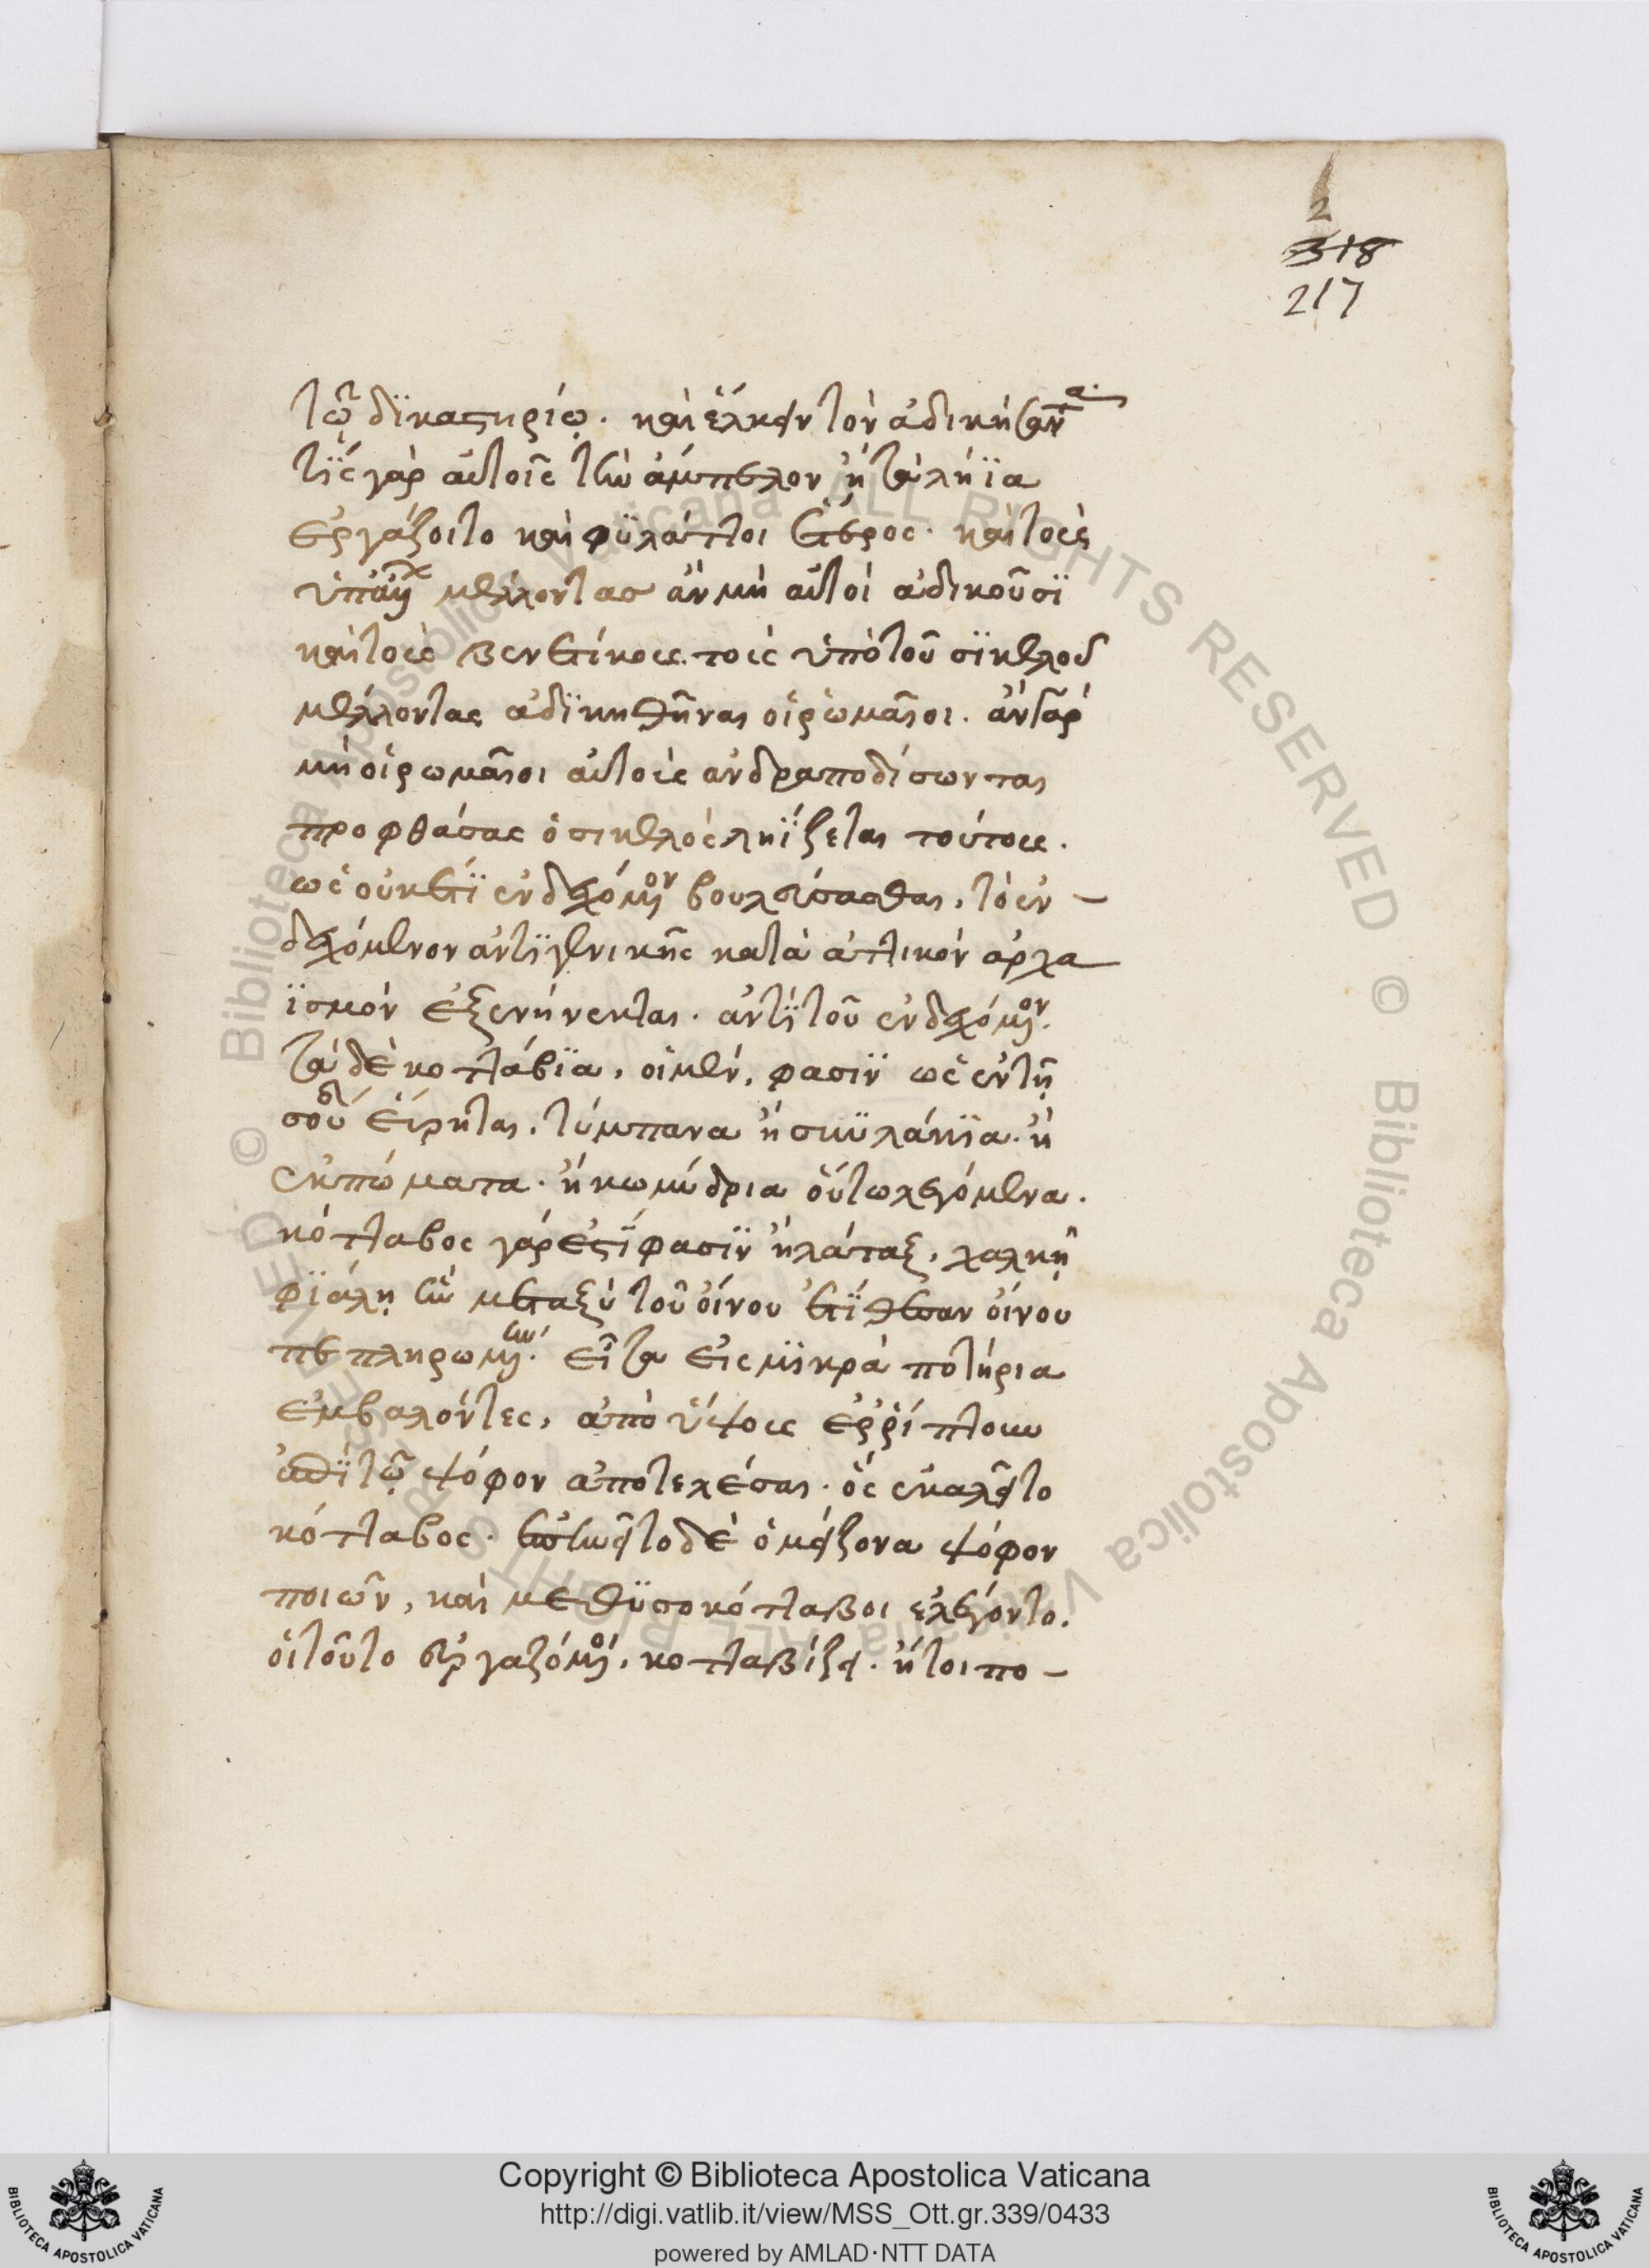 2
318
217
τῷ δϊκαστηρίῳ. καὶ ἕλκειν τὸν ἀδικήσαντα.
τῒς γὰρ αὐτοῖς τὴν ἄμπελον ἢ τὰ λήϊα
ἐργάζοιτο καὶ φϋλάττοι ἕτερος. καὶ τοὺς
ὑπ' αὐτῶν μέλλοντας ἂν μὴ αὐτοὶ ἀδικοῦσϊ
καὶ τοὺς βενετίκους. τοὺς ὑπὸ τοῦ σϊκελοῦ
μέλλοντας ἀδϊκηθῆναι οἱ ῥωμαῖοι. ἂν γὰρ
μὴ οἱ ῥωμαῖοι αὐτοὺς ἀνδραποδίσωνται
προφθάσας ὁ σικελὸς ληΐζεται τούτους.
ὡς οὐκ ἔτϊ ἐνδεχόμενον βουλεύσασθαι. τὸ ἐν –
δεχόμενον ἀντῒ γενικῆς κατὰ ἀττικὸν ἀρχα
ϊσμὸν ἐξενήνεκται. ἀντῒ τοῦ ἐνδεχόμενον.
τὰ δὲ κοττάβϊα, οἱ μέν, φασϊν ὡς ἐν τῇ
σουδ εἴρηται. τύμπανα ἢ σκϋλάκϊα. ἢ
ἐκπώματα. ἢ κωμύδρια οὕτω λεγόμενα.
κότταβος γὰρ ἐστΐ φασϊν ἡ λάταξ, χαλκῆ
φϊάλη ἣν μεταξὺ τοῦ οἴνου ἐτΐθεσαν οἴνου
πεπληρωμένην. εἶτα εἰς μϊκρὰ ποτήρια
ἐμβαλόντες, ἀπὸ ὕψους ἐῤῥίπτουν
ἐπϊ τῷ ψόφον ἀποτελέσαι. ὃς ἐκαλεῖτο
κότταβος. ἐστεφανοῦτο δὲ ὁ μείζονα ψόφον
ποιῶν, καὶ μεθϋσοκότταβοι ἐλέγοντο.
οἱ τοῦτο ἐργαζόμενοι. κοτταβίζει. ἤτοι πο –
Copyright © Biblioteca Apostolica Vaticana
http://digi.vatlib.it/view/MSS_Ott.gr.339/0433
powered by AMLAD·NTT DATA